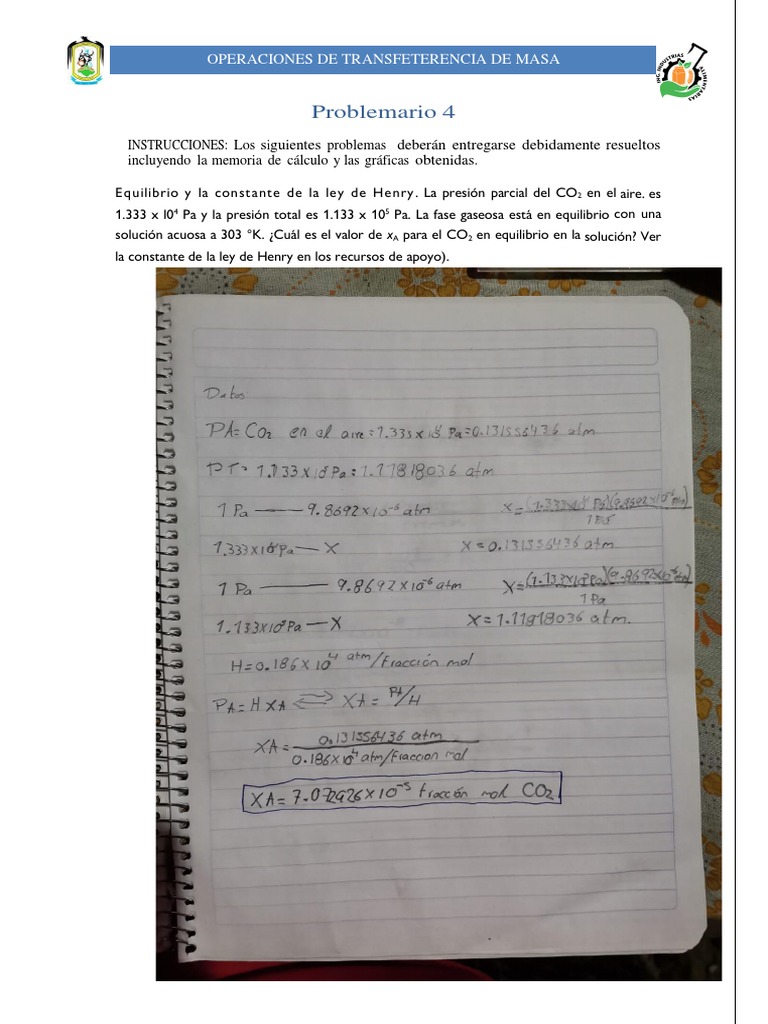 OPERACIONES DE TRANSFETERENCIA DE MASA
ING. INDUSTRIAS ALIMENTARIAS
Problemario 4
INSTRUCCIONES: Los siguientes problemas deberán entregarse debidamente resueltos
incluyendo la memoria de cálculo y las gráficas obtenidas.
Equilibrio y la constante de la ley de Henry. La presión parcial del CO₂ en el aire. es
1.333 x l0⁴ Pa y la presión total es 1.133 x 10⁵ Pa. La fase gaseosa está en equilibrio con una
solución acuosa a 303 °K. ¿Cuál es el valor de xA para el CO₂ en equilibrio en la solución? Ver
la constante de la ley de Henry en los recursos de apoyo).
Datos:
PA= CO₂ en el aire = 1.333 x 10⁴ Pa = 0.131556436 atm
PT = 1.133 x 10⁵ Pa = 1.11818036 atm
1 Pa —— 9.8692 x 10⁻⁶ atm X = (1.333x10⁴ Pa)(9.8692x10⁻⁶ atm) / 1 Pa
1.333x10⁴ Pa — X X = 0.131556436 atm
1 Pa —— 9.8692 x 10⁻⁶ atm X = (1.133x10⁵ Pa)(9.8692x10⁻⁶ atm) / 1 Pa
1.133x10⁵ Pa — X X = 1.11818036 atm.
H = 0.186 x 10⁴ atm/Fracción mol
PA = H XA ⇌ XA = PA/H
XA = 0.131556436 atm / 0.186x10⁴ atm/Fraccion mol
XA = 7.072926 x 10⁻⁵ fracción mol CO₂